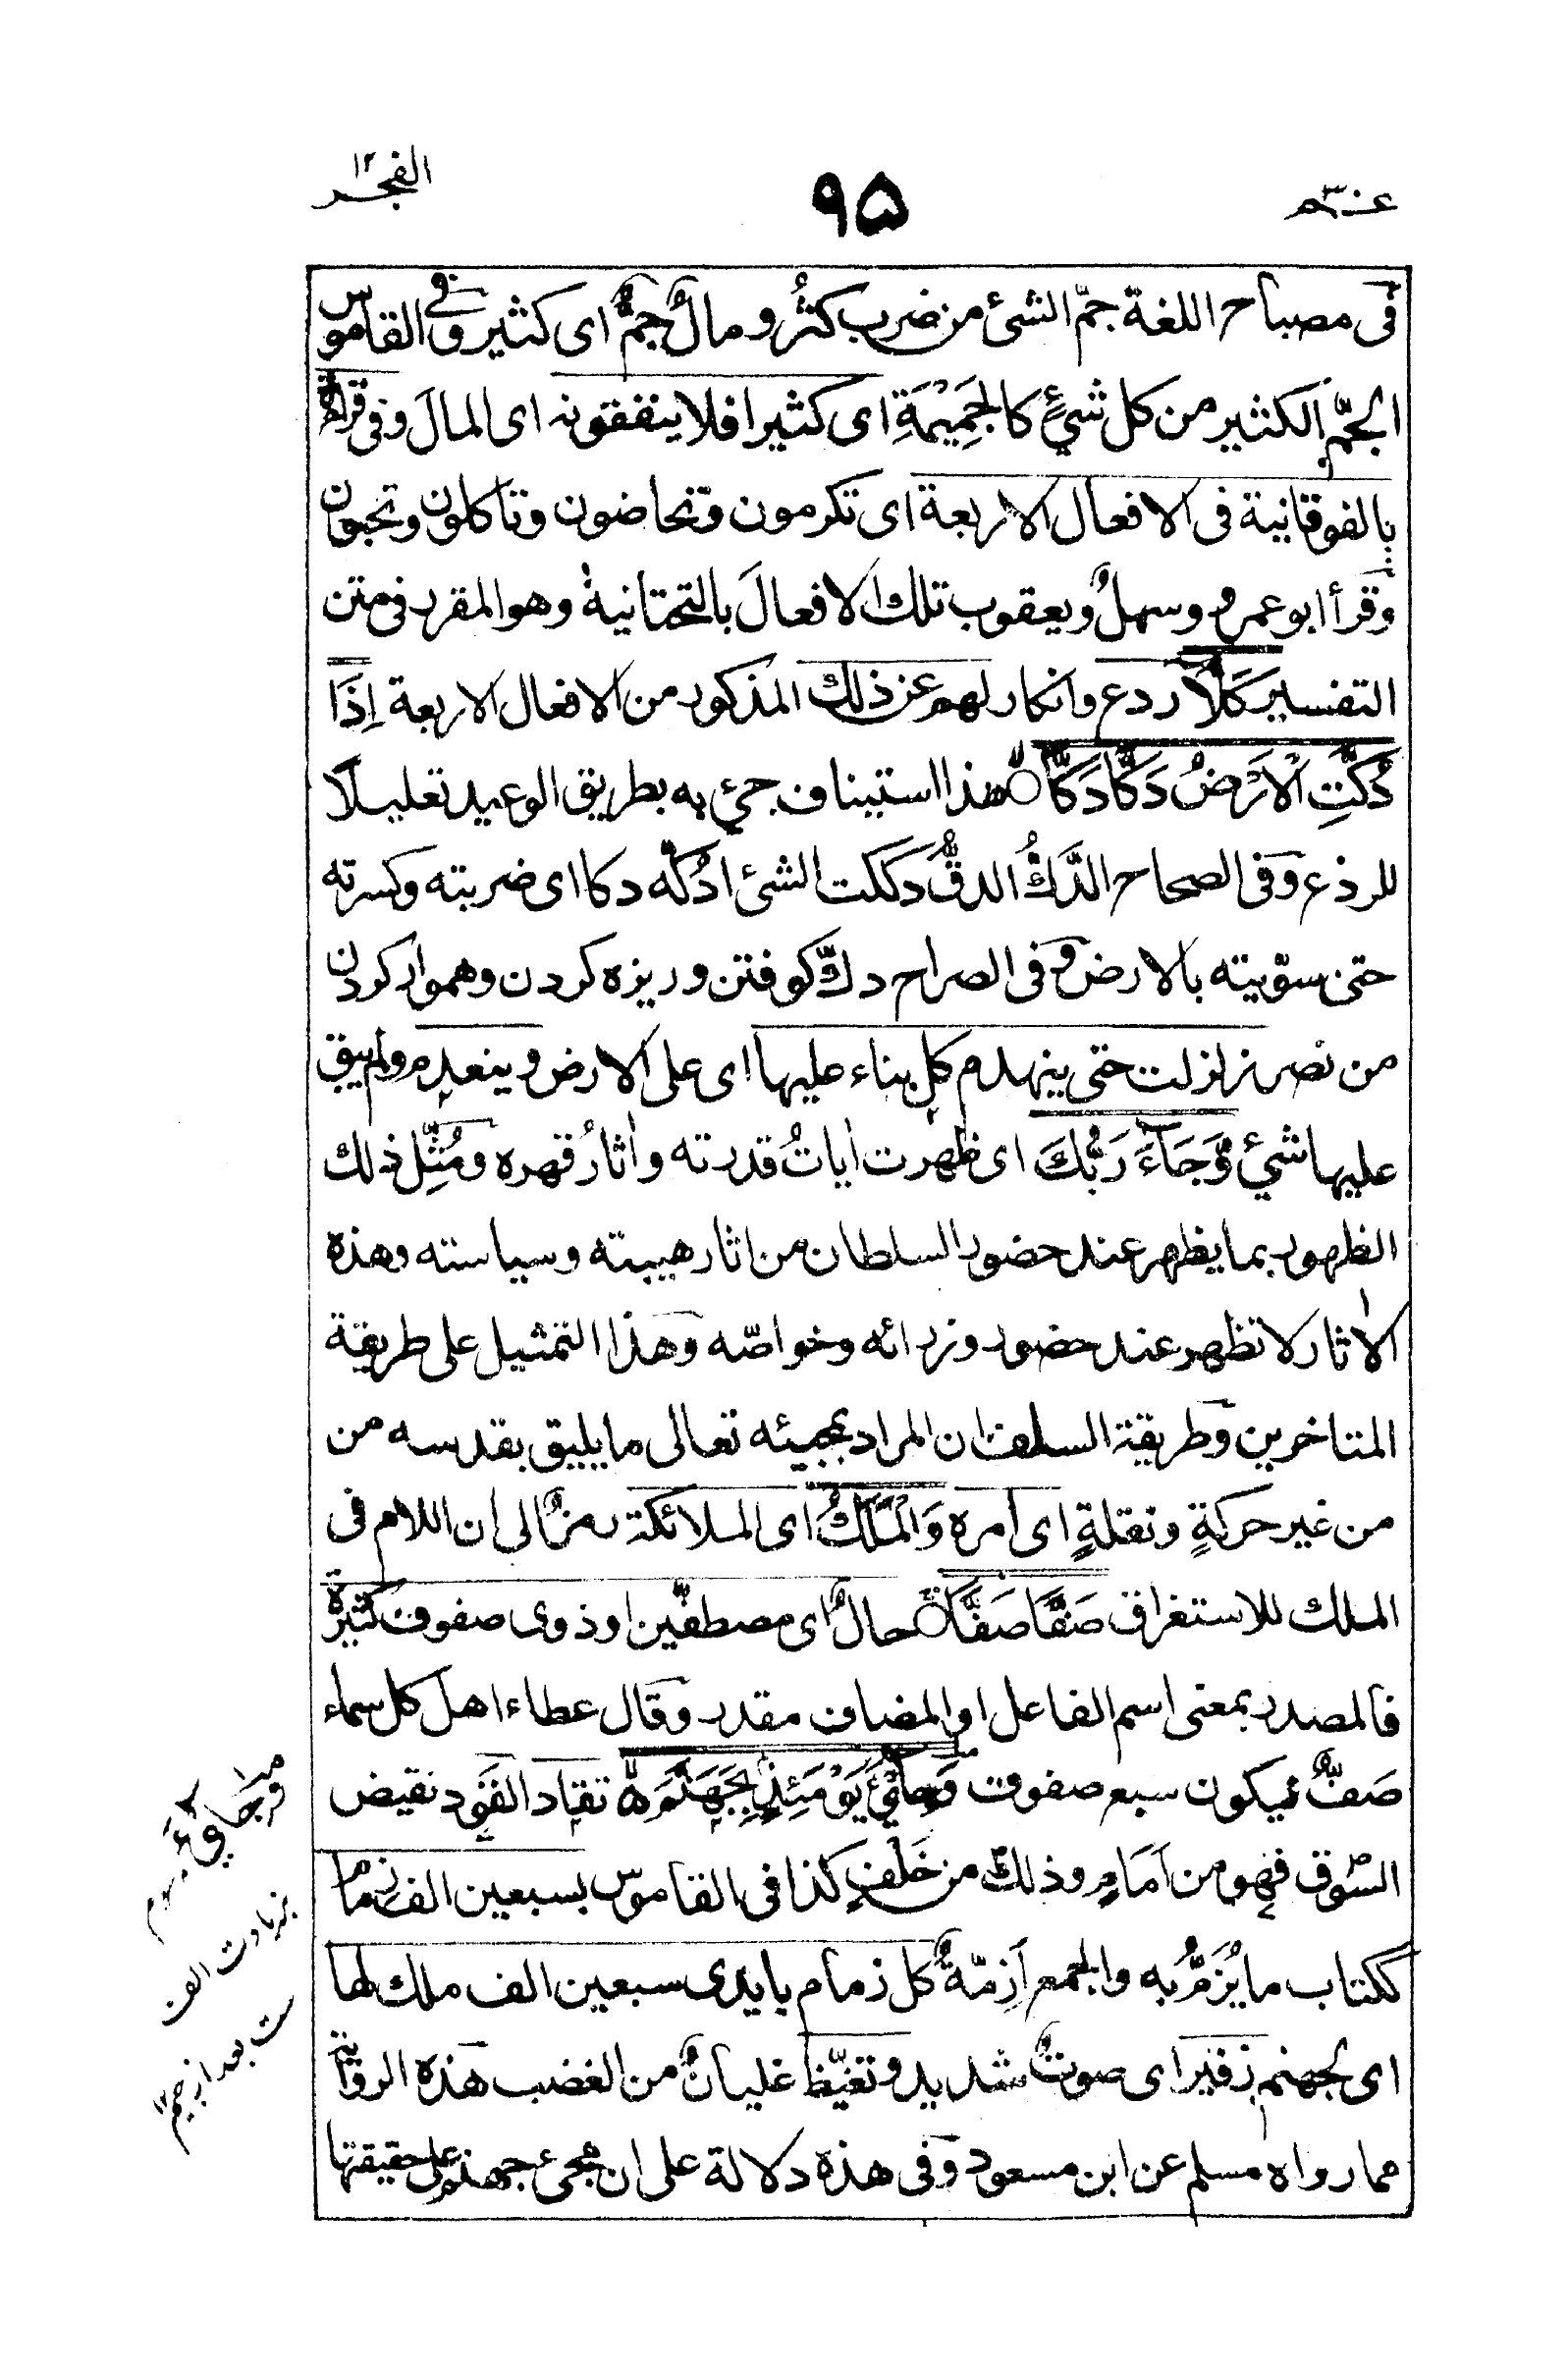 عم ٣٠
٩٥
الفجر ١٢
فى مصباح اللغة جمّ الشئ من ضرب كثُر و مالٌ جمٌّ اى كثير وفى القاموس
الجمّ الكثير من كل شئٍ كالجَمِيْمَةِ اى كثيرا فلا ينفقونه اى المالَ وفى قراءة
بالفوقانية فى الافعال الاربعة اى تكرمون وتحاضون وتاكلون وتحبون
وقرأ ابو عمرو وسهلٌ ويعقوب تلك الافعالَ بالتحتانية وهو المقرر فى متن
التفسير كَلَّا ردع وانكار لهم عن ذلك المذكور من الافعال الاربعة اِذَا
دُكَّتِ الْاَرْضُ دَكًّا دَكًّا هذا استيناف جئ به بطريق الوعيد تعليلا
للردع وفى الصحاح الدَّكُّ الدقُّ دككت الشئ ادُكّه دكا اى ضربته وكسرته
حتى سوّيته بالارض وفى الصراح دكّ كوفتن و ريزه كردن وهموار كردن
من نصر زلزلت حتى ينهدم كل بناء عليها اى على الارض وينعدم ولم يبق
عليها شئ وَّجَآءَ رَبُّكَ اى ظهرت اٰياتُ قدرته واٰثارُ قهره ومُثِّل ذلك
الظهور بما يظهر عند حضور السلطان من اثار هيبته وسياسته وهذه
الاٰثار لا تظهر عند حضور وزرائه وخواصّه وهذا التمثيل على طريقة
المتاخرين وطريقة السلف ان المراد بمجيئه تعالى ما يليق بقدسه من
من غير حركةٍ ونقلةٍ اى امره وَالْمَلَكُ اى الملائكة رمزٌ الى ان اللام فى
الملك للاستغراق صَفًّا صَفًّا حالٌ اى مصطفّين او ذوى صفوف كثيرة
فالمصدر بمعنى اسم الفاعل او المضاف مقدر وقال عطاء اهل كل سماء
صَفٌّ فيكون سبع صفوف وَجِایْٓءَ يَوْمَئِذٍۭ بِجَهَنَّمَ تقاد القَوَد نقيض
السَّوق فهو من اَمَامٍ وذلك من خَلفٍ كذا فى القاموس بسبعين الف زمام
ككتاب ما يُزَمُّ به والجمع اَزِمّةٌ كل زمام بايدى سبعين الف ملك لها
اى لجهنم زفير اى صوتٌ شديد وتغيّظ غليانٌ من الغضب هذه الرواية
مما رواه مسلم عن ابن مسعود وفى هذه دلالة على ان مجئ جهنم على حقيقتها
بزيادت الف
ست بعد از جيم ١٢